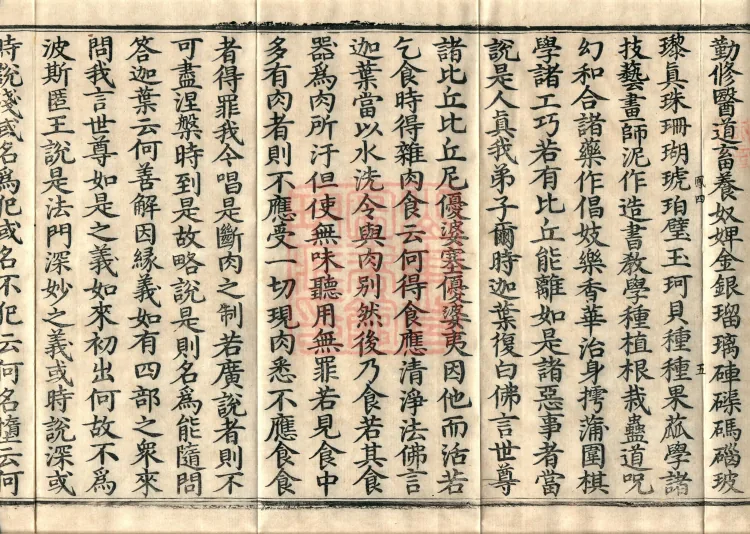 勤修醫道畜養奴婢金銀瑠璃硨磲碼碯玻
瓈真珠珊瑚琥珀璧玉珂貝種種果蓏學諸
鳳四
五
技藝畫師泥作造書教學種植根栽蠱道呪
幻和合諸藥作倡妓樂香華治身摴蒲圍棋
學諸工巧若有比丘能離如是諸惡事者當
說是人真我弟子爾時迦葉復白佛言世尊
諸比丘比丘尼優婆塞優婆夷因他而活若
乞食時得雜肉食云何得食應清淨法佛言
迦葉當以水洗令與肉別然後乃食若其食
器為肉所汙但使無味聽用無罪若見食中
多有肉者則不應受一切現肉悉不應食食
者得罪我今唱是斷肉之制若廣說者則不
可盡涅槃時到是故略說是則名為能隨問
答迦葉云何善解因緣義如有四部之眾來
問我言世尊如是之義如來初出何故不為
波斯匿王說是法門深妙之義或時說深或
時說淺或名為犯或名不犯云何名墮云何